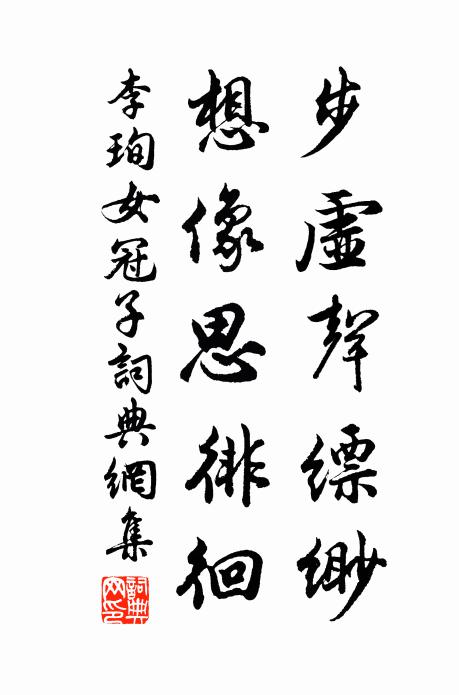 步虛聲縹緲
想像思徘徊
李珣女冠子詞典網集
詞典网印